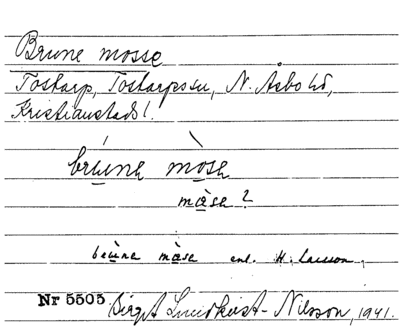 Brune mosse
Tostarp, Tostarps sn, N. Åsbo hd,
Kristianstads l.
brúu̲ne mò̲se
mœ̲se ?
bru̲ne mœ̲se enl. H. Larsson.
Nr 5505 Birgit Lundkvist-Nilsson, 1941.